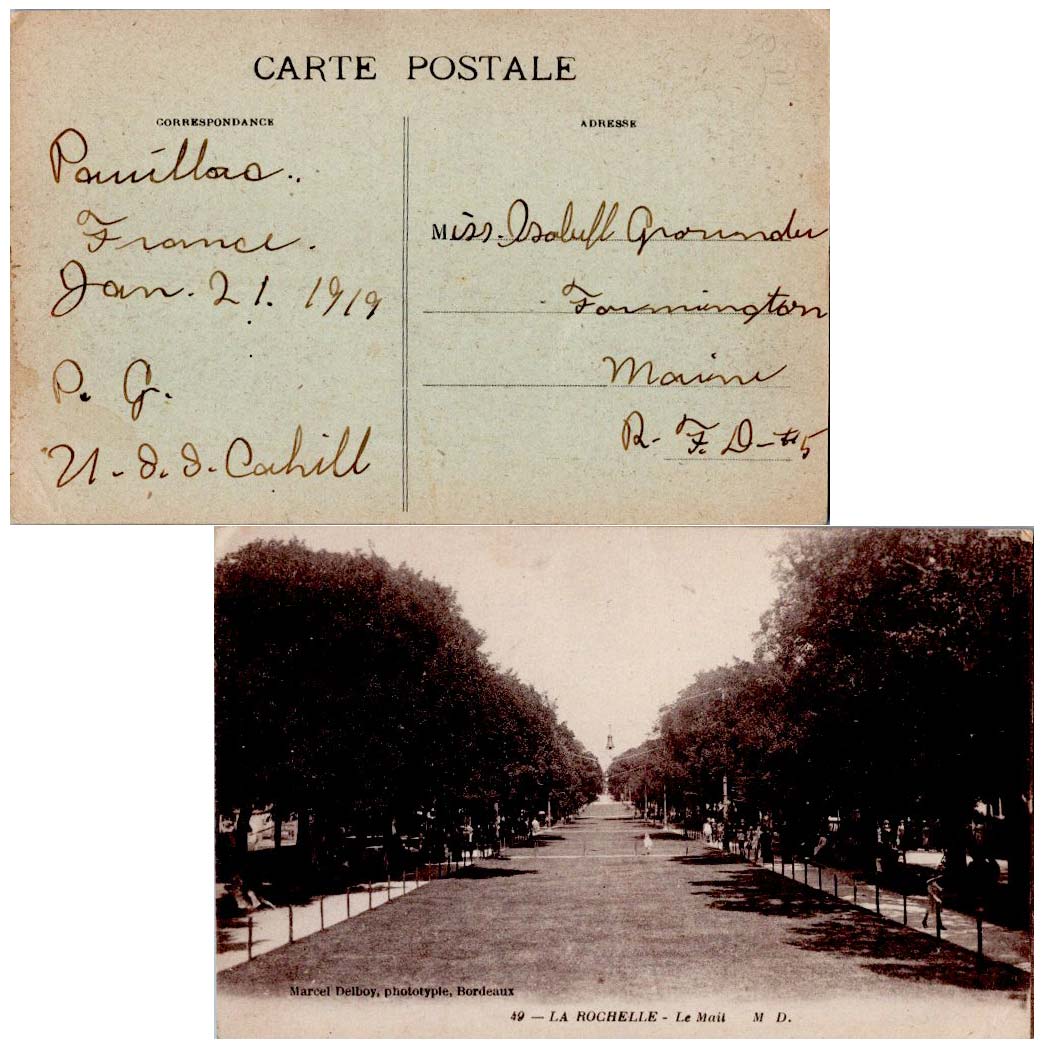 CARTE POSTALE
CORRESPONDANCE
Pauillac.
France.
Jan. 21. 1919
P. G.
U. S. S. Cahill
ADRESSE
Miss. Isabell Grounder
Farmington
Maine
R. F. D - #5
Marcel Delboy, phototypie, Bordeaux
49 — LA ROCHELLE - Le Mail M D.